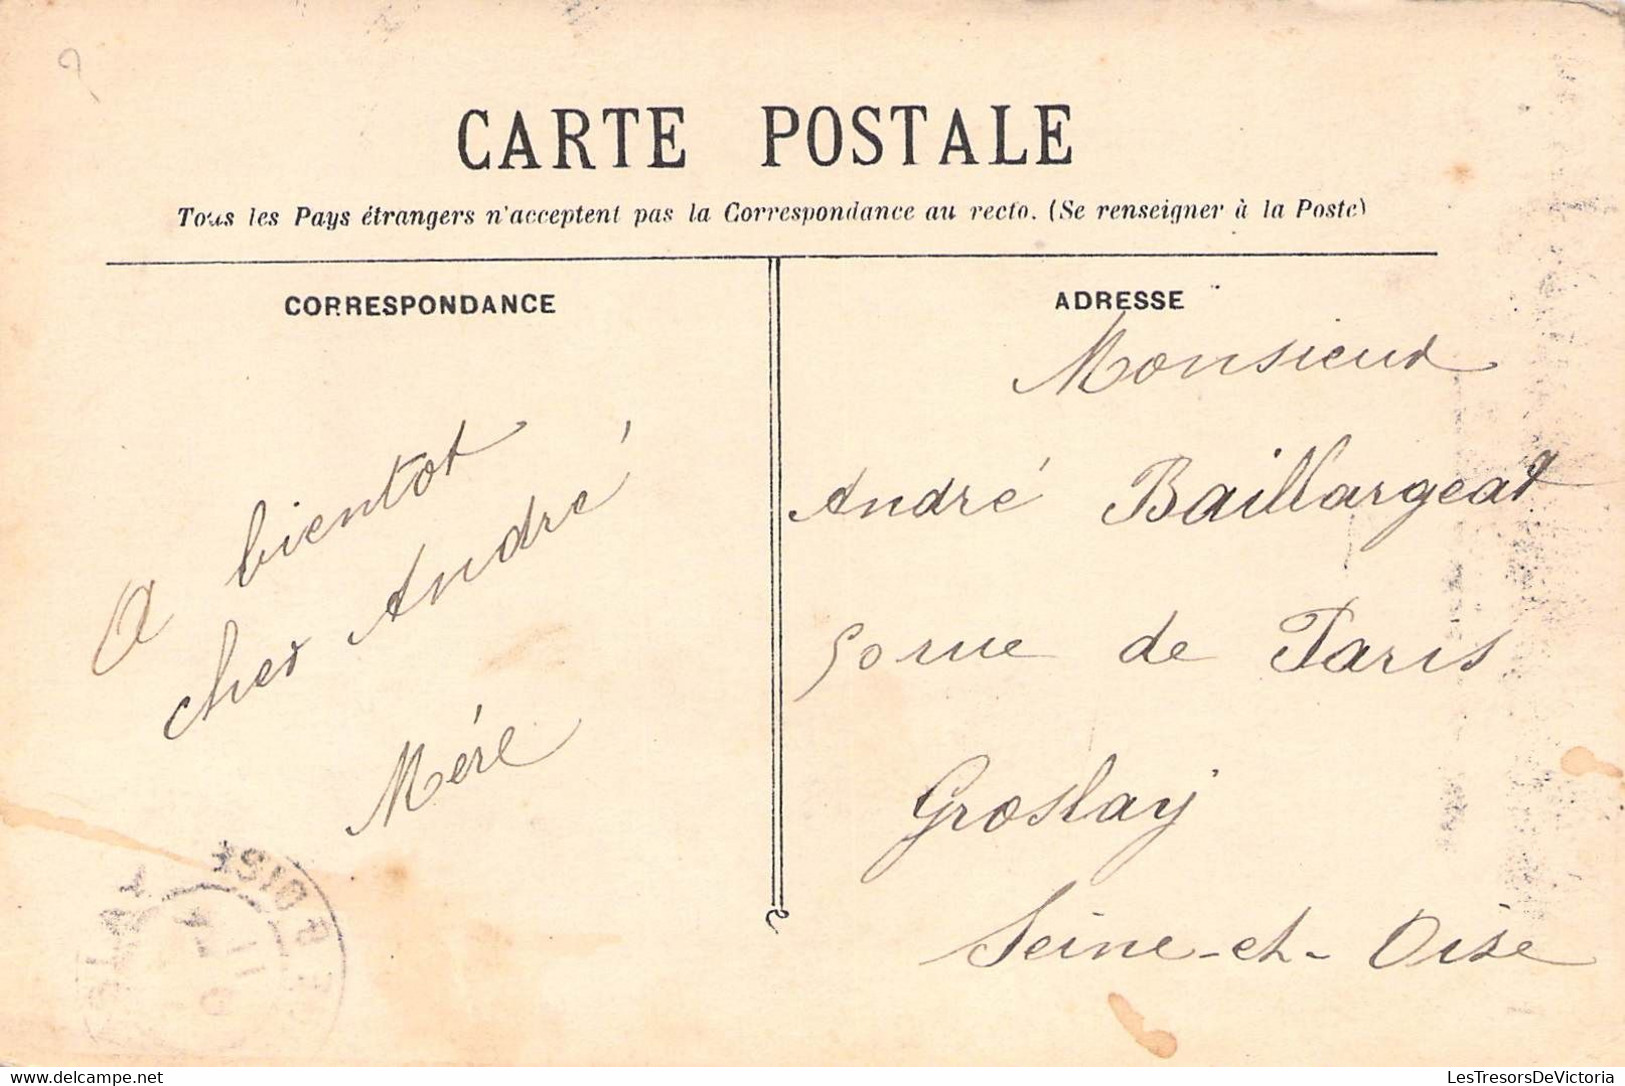 CARTE POSTALE
Tous les Pays étrangers n'acceptent pas la Correspondance au recto. (Se renseigner à la Poste)
CORRESPONDANCE
A bientot
cher André
Mére
ADRESSE
Monsieur
André Baillargeat
50 rue de Paris
Groslay
Seine-et-Oise
LesTresorsDeVictoria